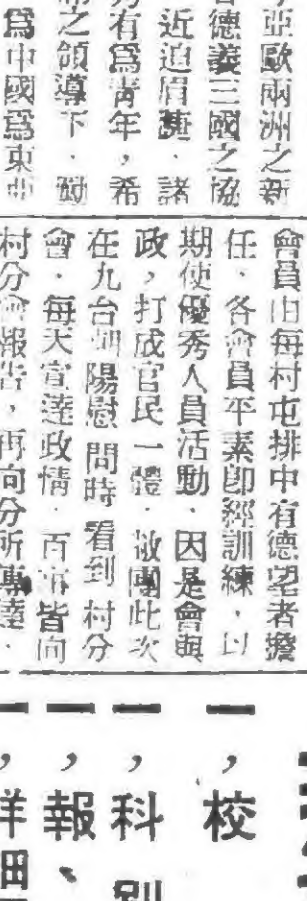 亞歐兩洲之新
德義三國之協
近迫眉睫．諸
有爲靑年，希
之領導下．勉
爲中國爲東亞
會員由每村屯排中有德望者擔
任．各會員平素卽經訓練，以
期使優秀人員活動．因是會與
政，打成官民一體．敝團此次
在九台朝陽慰問時看到村分
會．每天宣達政情．百事皆向
村分會報告，再向分所傳達．
一，校
一，科別
一，報、
一，詳細